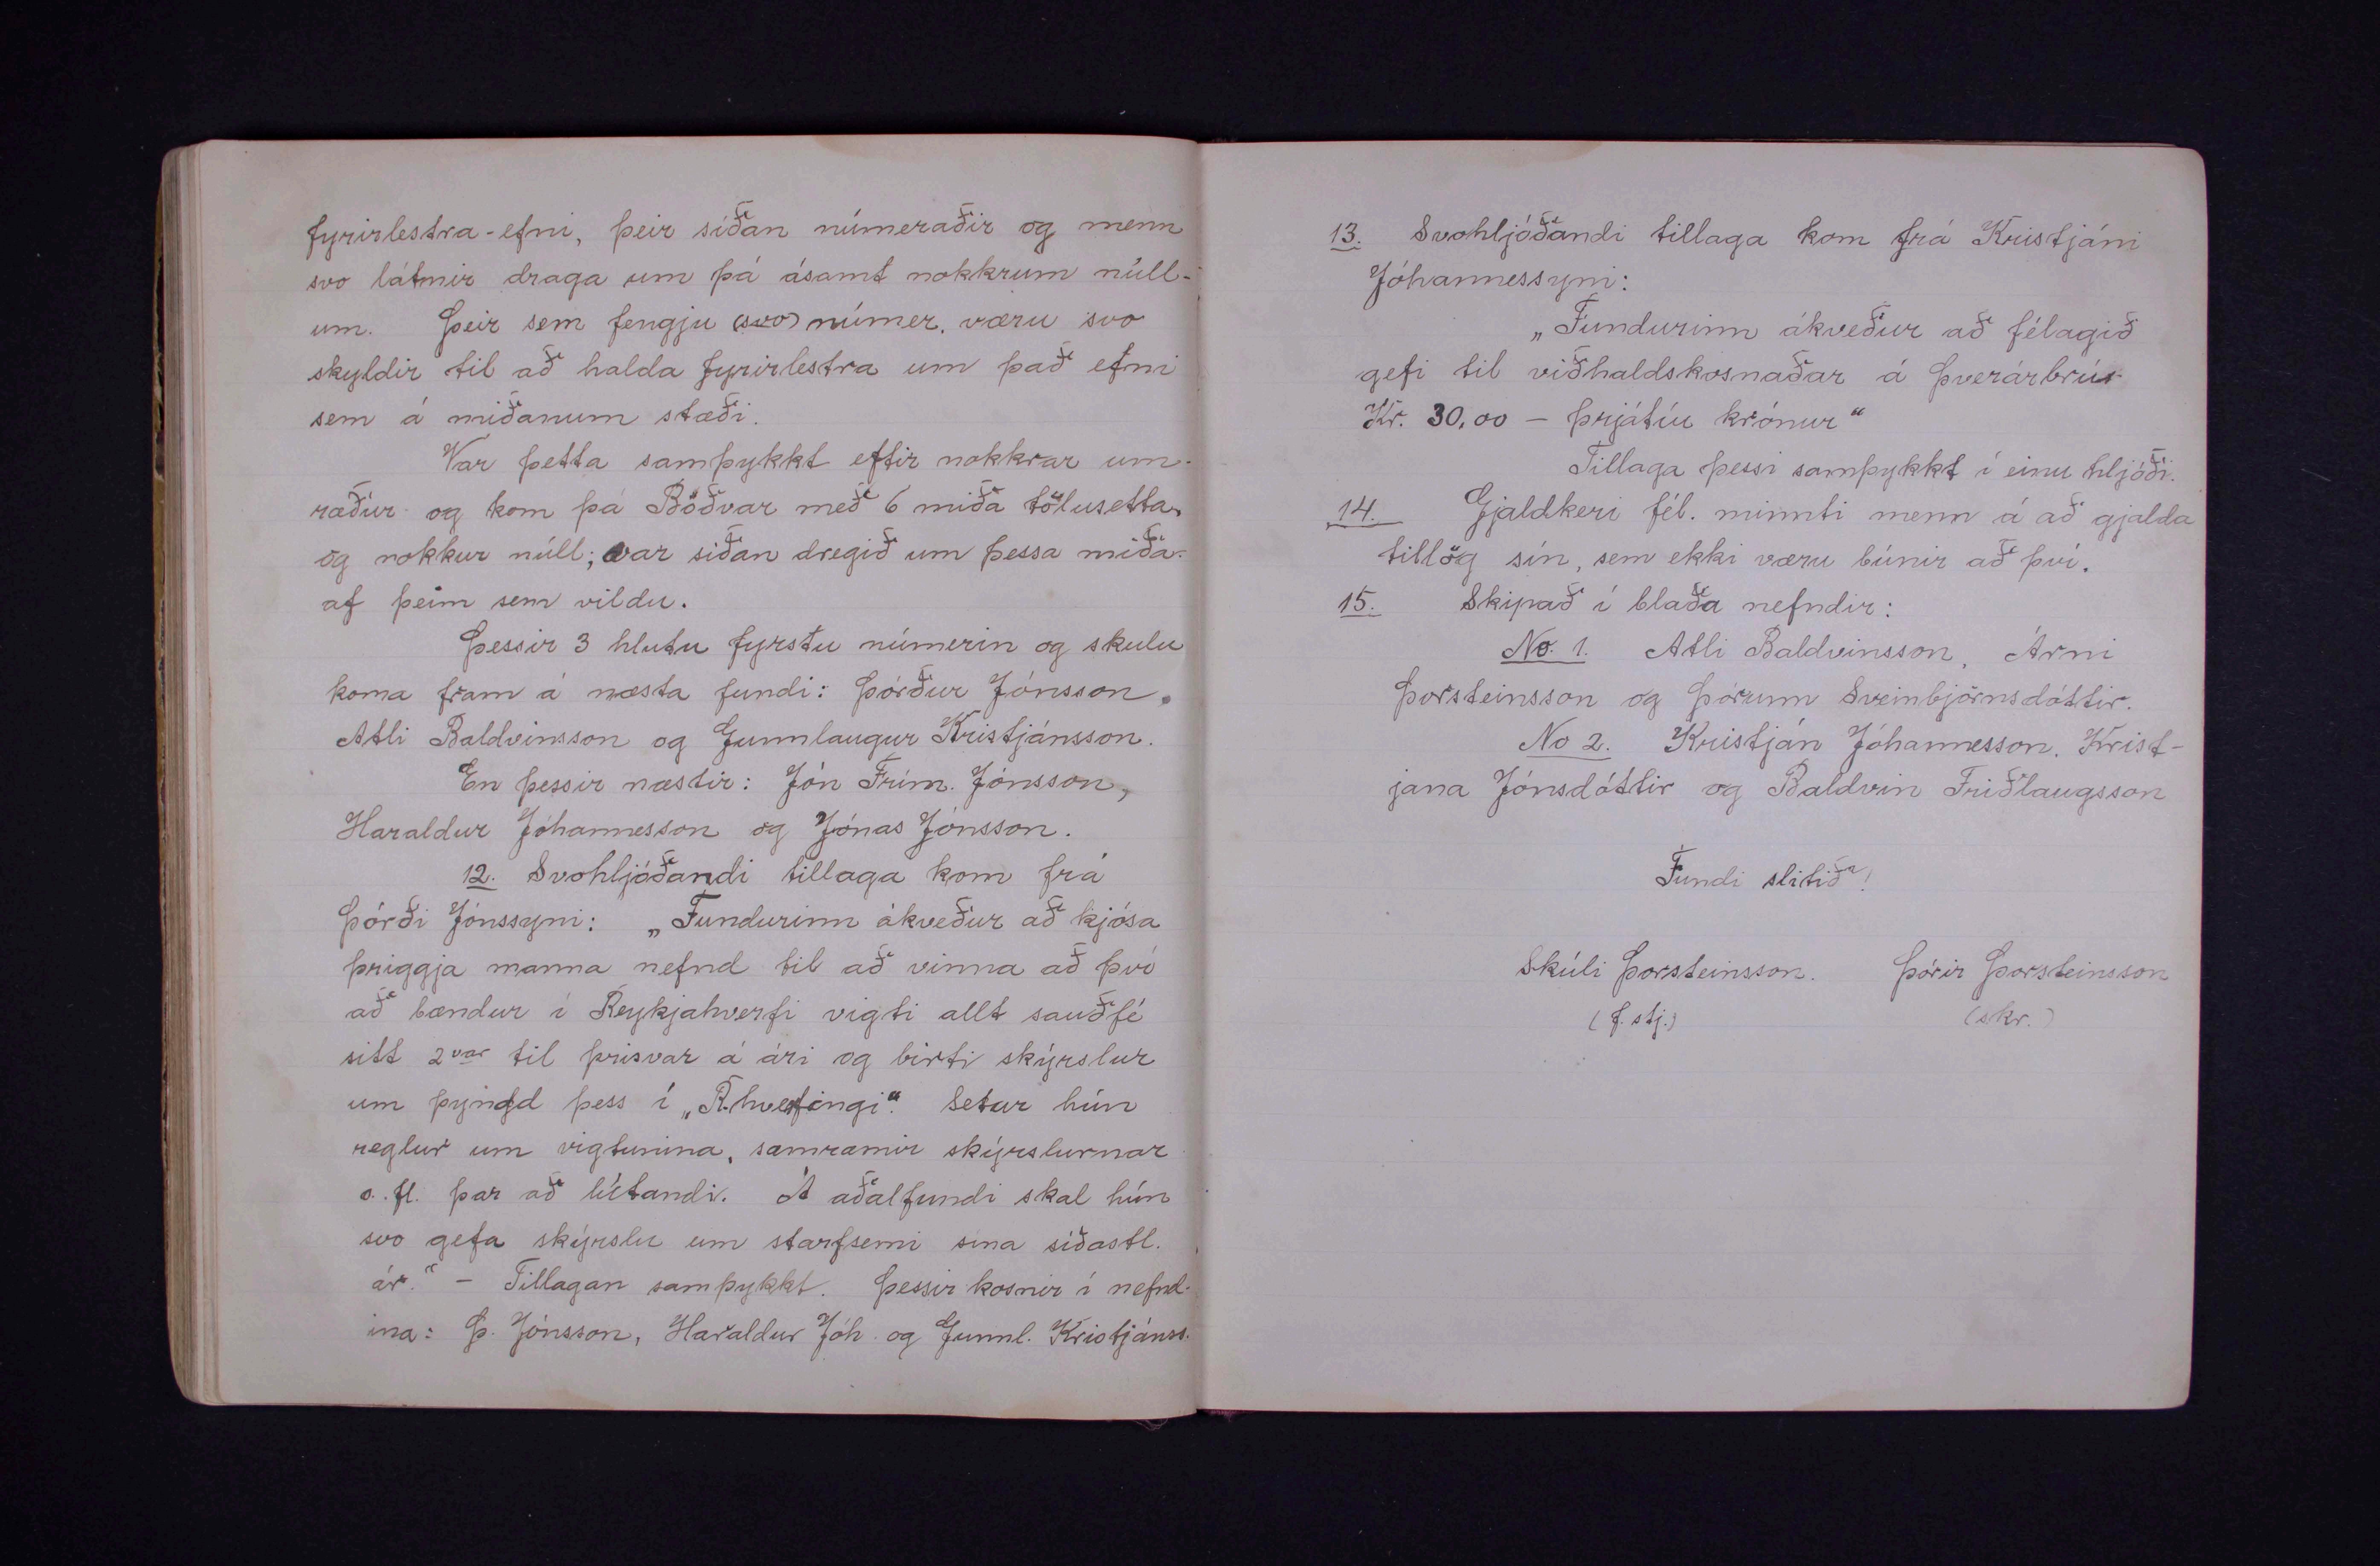 fyrirlestra-efni, þeir síðan númeraðir og menn
svo látnir draga um þá ásamt nokkrum núll-
um. Þeir sem fengju (svo) númer, væru svo
skyldir til að halda fyrirlestra um það efni
sem á miðanum stæði.
Var þetta samþykkt eftir nokkrar um-
ræður og kom þá Böðvar með 6 miða tölusetta,
og nokkur núll; var síðan dregið um þessa miða
af þeim sem vildu.
Þessir 3 hlutu fyrstu númerin og skulu
koma fram á næsta fundi: Þórður Jónsson,
Atli Baldvinsson og Gunnlaugur Kristjánsson.
En þessir næstir: Jón Frím. Jónsson,
Haraldur Jóhannesson og Jónas Jónsson.
12. Svohljóðandi tillaga kom frá
Þórði Jónssyni: „Fundurinn ákveður að kjósa
þriggja manna nefnd til að vinna að því
að bændur í Reykjahverfi vigti allt sauðfé
sitt 2var til þrisvar á ári og birti skýrslur
um þyngd þess í „R.hverfingi“. Setur hún
reglur um vigtunina, samræmir skýrslurnar
o. fl. þar að lútandi. Á aðalfundi skal hún
svo gefa skýrslu um starfsemi sína síðastl.
ár.“ – Tillagan samþykkt. Þessir kosnir í nefnd-
ina: Þ. Jónsson, Haraldur Jóh. og Gunnl. Kristjánss.
13. Svohljóðandi tillaga kom frá Kristjáni
Jóhannessyni:
„Fundurinn ákveður að félagið
gefi til viðhaldskosnaðar á Þverárbrú
Kr. 30,00 – þrjátíu krónur“
Tillaga þessi samþykkt í einu hljóði.
14. Gjaldkeri fél. minnti menn á að gjalda
tillög sín, sem ekki væru búnir að því.
15. Skipað í blaða nefndir:
No. 1. Atli Baldvinsson, Árni
Þorsteinsson og Þórunn Sveinbjörnsdóttir.
No 2. Kristján Jóhannesson, Krist-
jana Jónsdóttir og Baldvin Friðlaugsson
Fundi slitið!
Skúli Þorsteinsson. Þórir Þorsteinsson
(f. stj.) (skr.)